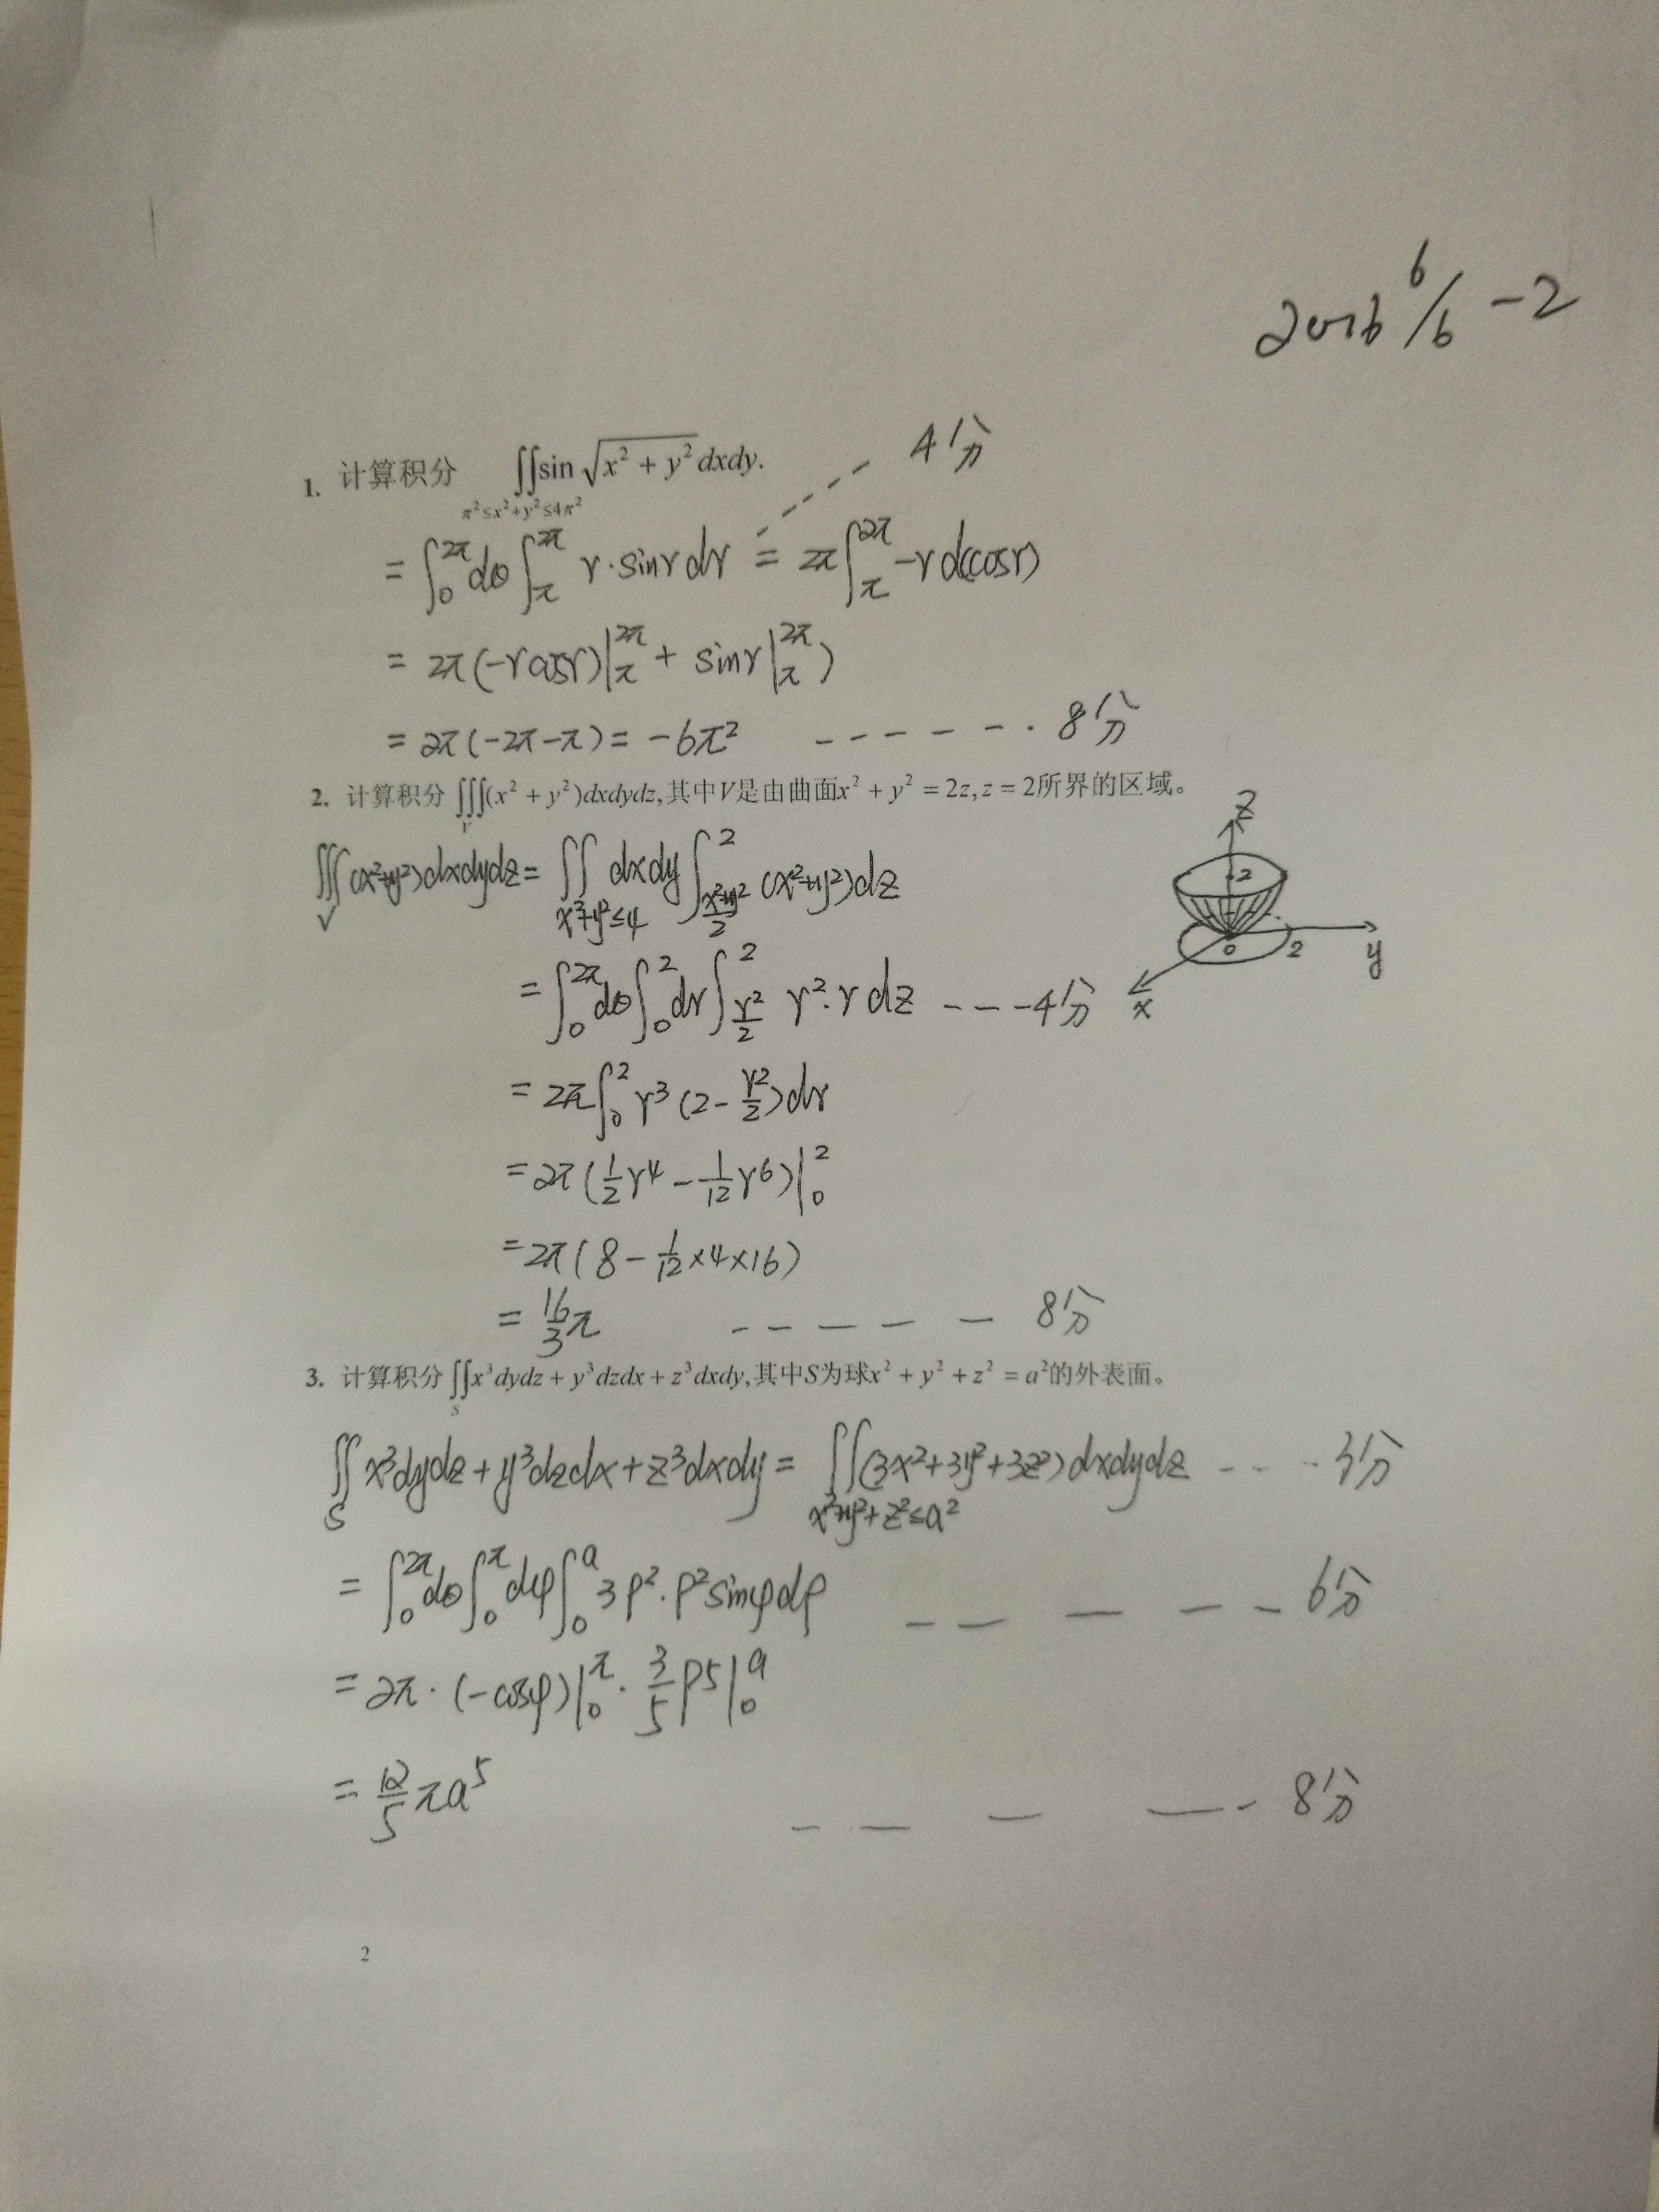 2016 6/6 -2
1. 计算积分 ∬sin √(x² + y²) dxdy. ---- 4分
π²≤x²+y²≤4π²
= ∫₀^{2π} dθ ∫_π^{2π} r·sinr dr = 2π ∫_π^{2π} -r d(cosr)
= 2π(-rcosr)|_π^{2π} + sinr|_π^{2π})
= 2π(-2π-π) = -6π² ------- 8分
2. 计算积分 ∭(x² + y²)dxdydz, 其中V是由曲面x² + y² = 2z, z = 2所界的区域。
V
z
2
0
2
y
x
∭_V (x²+y²)dxdydz = ∬_{x²+y²≤4} dxdy ∫_{(x²+y²)/2}^2 (x²+y²)dz
= ∫₀^{2π} dθ ∫₀² dr ∫_{r²/2}^2 r²·r dz ---4分
= 2π ∫₀² r³ (2 - r²/2) dr
= 2π (1/2 r⁴ - 1/12 r⁶)|₀²
= 2π (8 - 1/12 ×4×16)
= 16/3 π ----- 8分
3. 计算积分 ∬x³dydz + y³dzdx + z³dxdy, 其中S为球x² + y² + z² = a²的外表面。
S
∬_S x³dydz + y³dzdx + z³dxdy = ∬_{x²+y²+z²≤a²} (3x²+3y²+3z²) dxdydz ---- 3分
= ∫₀^{2π} dθ ∫₀^π dφ ∫₀^a 3ρ²·ρ²sinφ dρ ----- 6分
= 2π · (-cosφ)|₀^π · 3/5 ρ⁵|₀^a
= 12/5 πa⁵ ----- 8分
2